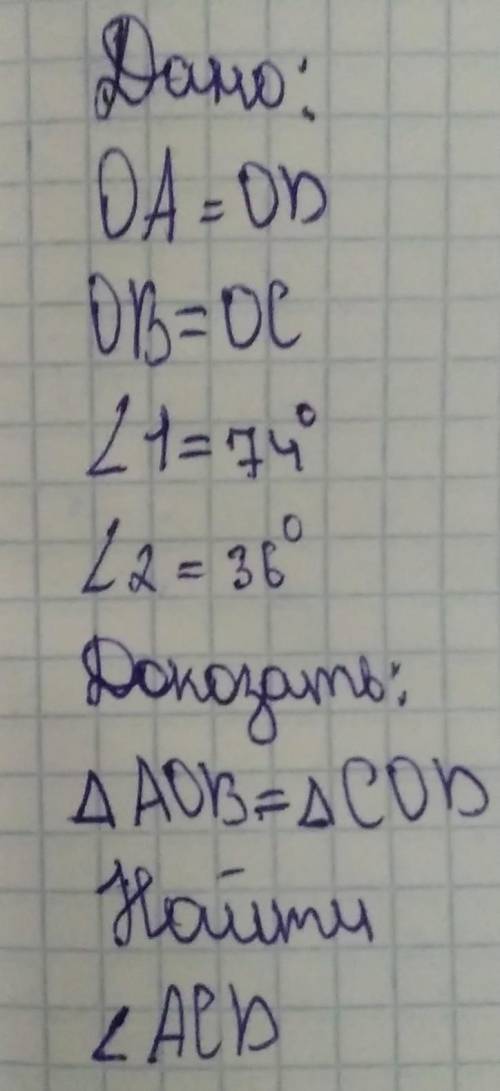 Дано:
OA = OD
OB = OC
∠1 = 74°
∠2 = 36°
Доказать:
Δ AOB = Δ COD
Найти
∠ ACD